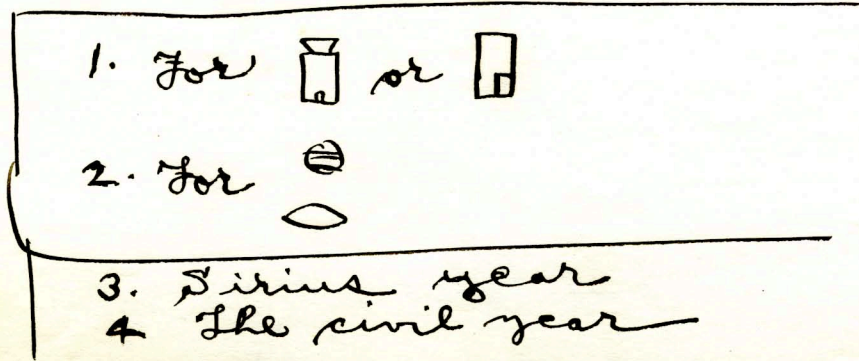 1. For or 𓉗
2. For 𓐍
𓂋
3. Sirius year
4 The civil year